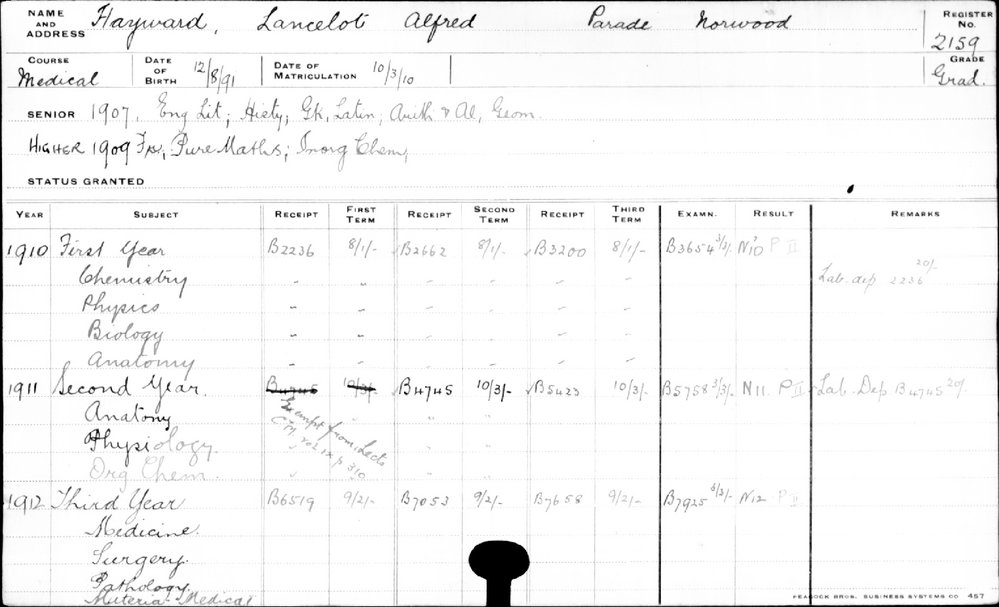 NAME AND ADDRESS Hayward, Lancelot Alfred Parade Norwood REGISTER No. 2159
COURSE Medical DATE OF BIRTH 12/8/91 DATE OF MATRICULATION 10/3/10 GRADE Grad.
SENIOR 1907. Eng Lit; Histy; Gk, Latin; Arith & Al, Geom.
HIGHER 1909 Pure Maths; Inorg Chem;
STATUS GRANTED
YEAR SUBJECT RECEIPT FIRST TERM RECEIPT SECOND TERM RECEIPT THIRD TERM EXAMN. RESULT REMARKS
1910 First Year B2236 8/1/- B2662 8/1/- B3200 8/1/- B3654 3/3/- N10 P II
Chemistry " " " " " " Lab. dep 2236 20/-
Physics " " " " " "
Biology " " " " " "
Anatomy " " " " " "
1911 Second Year B4745 10/3/- B4745 10/3/- B5423 10/3/- B5758 3/3/- N11. P II Lab. Dep. B4745 20/-
Anatomy " " " "
Physiology. " "
Org Chem. " "
Exempt from Lects
C.M. Vol IX p 310
1912 Third Year B6519 9/2/- B7053 9/2/- B7658 9/2/- B7925 3/3/- N12 P II
Medicine.
Surgery.
Pathology
Materia Medica
PEACOCK BROS. BUSINESS SYSTEMS CO 457